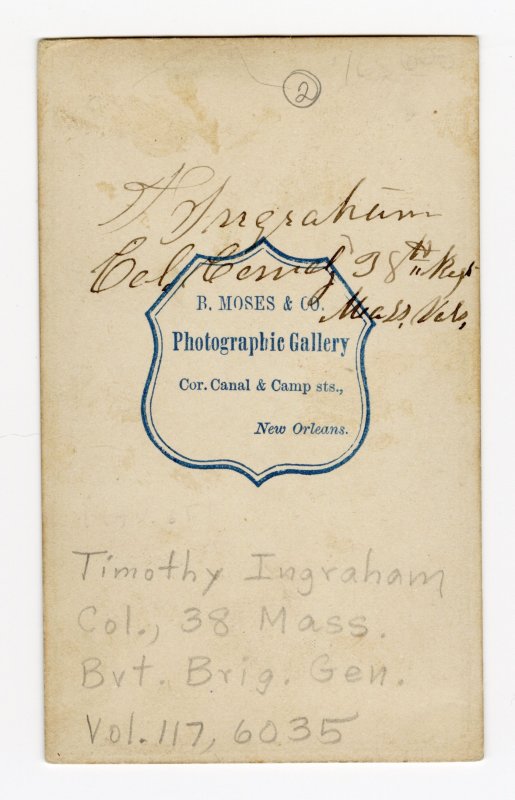 2
T Ingraham
Col. Comdg 38th Regt
Mass. Vols.
B. MOSES & CO.
Photographic Gallery
Cor. Canal & Camp sts.,
New Orleans.
Timothy Ingraham
Col., 38 Mass.
Bvt. Brig. Gen.
Vol. 117, 6035